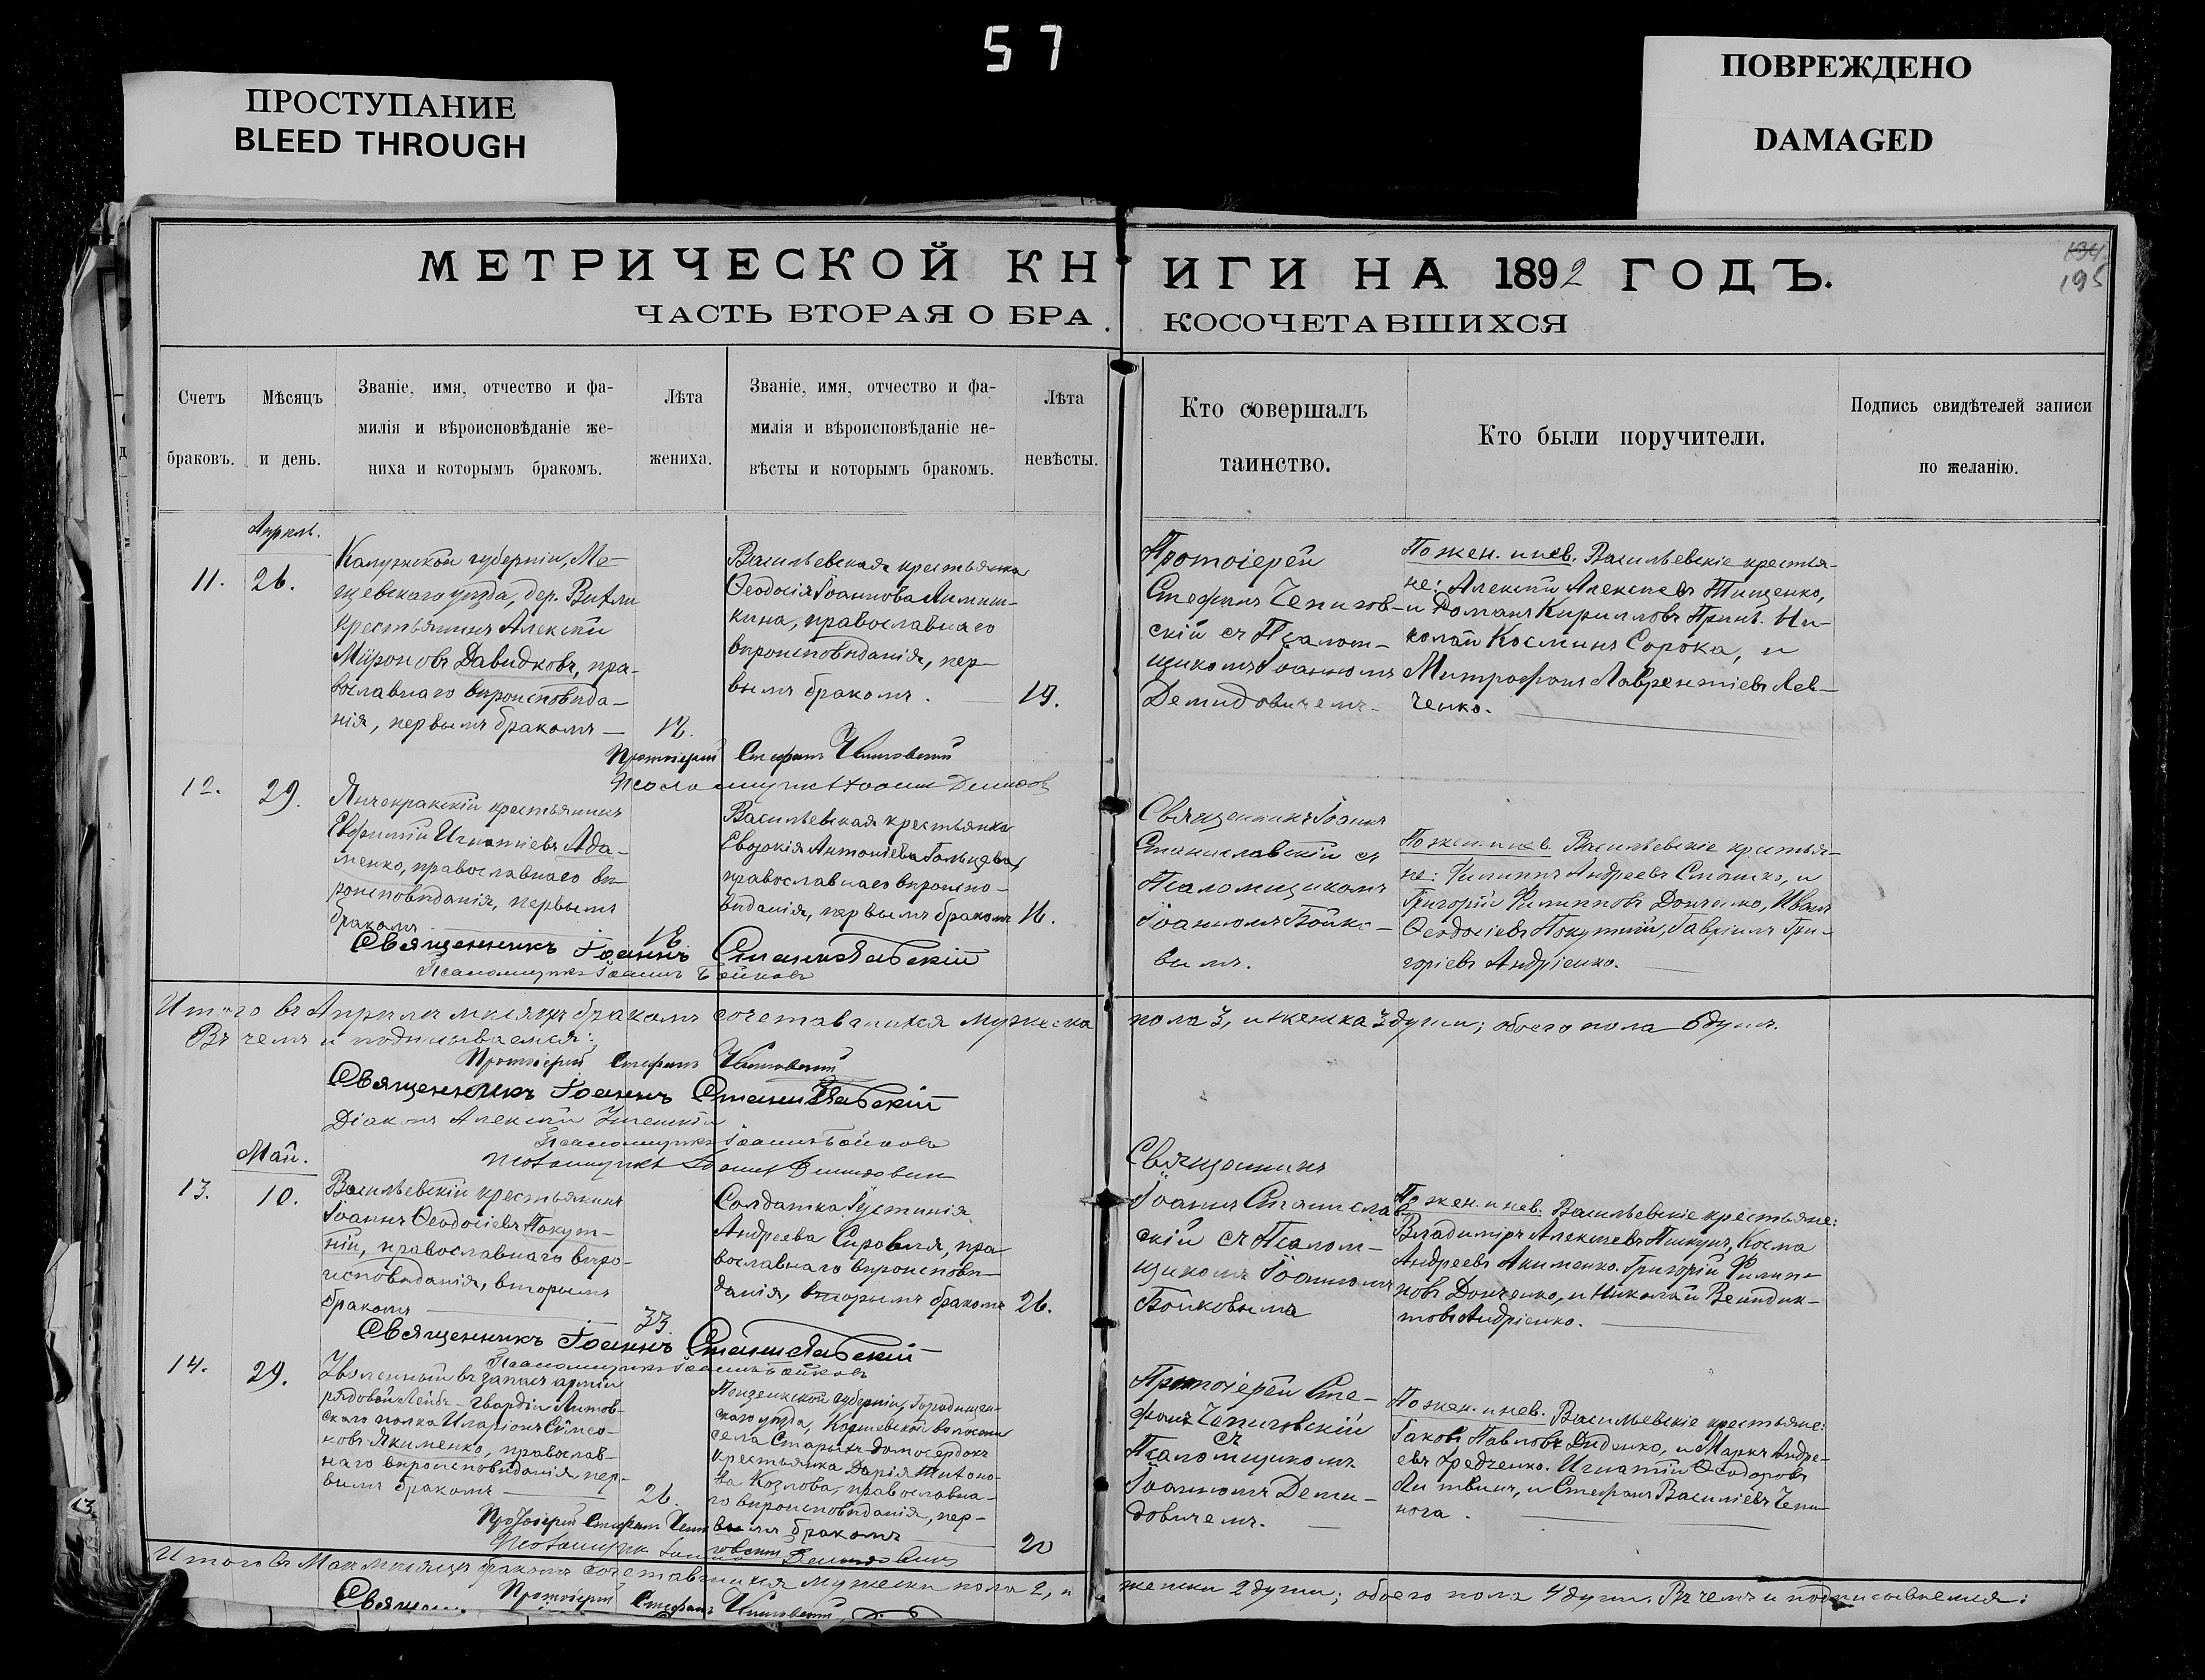 57
ПРОСТУПАНИЕ
BLEED THROUGH
ПОВРЕЖДЕНО
DAMAGED
МЕТРИЧЕСКОЙ КНИГИ НА 1892 ГОДЪ.
195
ЧАСТЬ ВТОРАЯ О БРАКОСОЧЕТАВШИХСЯ
Счетъ браковъ.
Мѣсяцъ и день.
Званіе, имя, отчество и фа-
милія и вѣроисповѣданіе же-
ниха и которымъ бракомъ.
Лѣта жениха.
Званіе, имя, отчество и фа-
милія и вѣроисповѣданіе не-
вѣсты и которымъ бракомъ.
Лѣта невѣсты.
Кто совершалъ
таинство.
Кто были поручители.
Подпись свидѣтелей записи
по желанію.
Апрѣль.
11. 26.
Калужской губерніи, Ме-
щевскаго уѣзда, дер.
крестьянинъ Алексѣй
Мѵроновъ Давидковъ, пра-
вославнаго вѣроисповѣда-
нія, первымъ бракомъ —
Васильевская крестьянка
Ѳеодосія Іоаннова
православнаго
вѣроисповѣданія, пер-
вымъ бракомъ.
19.
Протоіерей
Стефанъ Чепигов-
скій съ Псалом-
щикомъ Іоанномъ
Демидовичемъ.
По жен. и нев. Васильевскіе крестья-
не: Алексѣй Алексѣевъ Тищенко,
и Романъ Кирилловъ Ни-
колай Косминъ Сорока, и
Митрофанъ Лаврентіевъ Лев-
ченко.
Протоіерей Стефанъ Чепиговскій
Псаломщикъ Іоаннъ
12. 29.
Янчекракскій крестьянинъ
Евфимій Игнатіевъ Ада-
менко, православнаго вѣ-
роисповѣданія, первымъ
бракомъ
Васильевская крестьянка
Евдокія Антоніева Гольцева,
православнаго вѣроиспо-
вѣданія, первымъ бракомъ
Священникъ Іоаннъ
Станиславскій съ
Псаломщикомъ
Іоанномъ Бойко-
вымъ.
По жен. и нев. Васильевскіе крестья-
не: Филиппъ Андреевъ и
Григорій Филипповъ Донченко, Иванъ
Ѳеодосіевъ Покутній, Гавріилъ Гри-
горіевъ Андріенко.
Священникъ Іоаннъ Станиславскій
Псаломщикъ Іоаннъ Бойковъ
Итого въ Апрѣлѣ мѣсяцѣ бракомъ сочетавшихся мужеска пола 3, и женска 3 души; обоего пола 6 душъ.
Въ чемъ и подписываемся:
Протоіерей Стефанъ Чепиговскій
Священникъ Іоаннъ Станиславскій
Діаконъ Алексѣй
Псаломщикъ Іоаннъ Бойковъ
Псаломщикъ Іоаннъ Демидовичъ
Май.
13. 10.
Васильевскій крестьянинъ
Іоаннъ Ѳеодосіевъ Покут-
ній, православнаго вѣро-
исповѣданія, вторымъ
бракомъ
33.
Солдатка Іустинія
Андреева Сировая, пра-
вославнаго вѣроисповѣ-
данія, вторымъ бракомъ
26.
Священникъ
Іоаннъ Станислав-
скій съ Псалом-
щикомъ Іоанномъ
Бойковымъ
По жен. и нев. Васильевскіе крестьяне:
Владиміръ Алексѣевъ Пискунъ, Косма
Андреевъ Акименко. Григорій Филип-
повъ Донченко, и Николай Венидик-
товъ Андріенко.
Священникъ Іоаннъ Станиславскій
Псаломщикъ Іоаннъ Бойковъ
14. 29.
Уволенный въ запасъ арміи
рядовой Лейбъ-Гвардіи Литов-
скаго полка Иларіонъ Сѵмео-
новъ Якименко, православ-
наго вѣроисповѣданія, пер-
вымъ бракомъ
26.
Пензенской губерніи, Городищен-
скаго уѣзда, волости
села
крестьянка Дарія
Козлова, православна-
го вѣроисповѣданія, пер-
вымъ бракомъ
20
Протоіерей Сте-
фанъ Чепиговскій
съ
Псаломщикомъ
Іоанномъ Деми-
довичемъ.
По жен. и нев. Васильевскіе крестьяне:
Іаковъ Павловъ Диденко, и Маркъ Андре-
евъ Игнатій Ѳеодоровъ
Литвинъ, и Стефанъ Василіевъ Чепи-
нога.
Протоіерей Стефанъ Чепиговскій
Псаломщикъ Іоаннъ Демидовичъ
Итого въ Маѣ мѣсяцѣ бракомъ сочетавшихся мужеска пола 2, и женска 2 души; обоего пола 4 души. Въ чемъ и подписываемся:
Протоіерей Стефанъ Чепиговскій